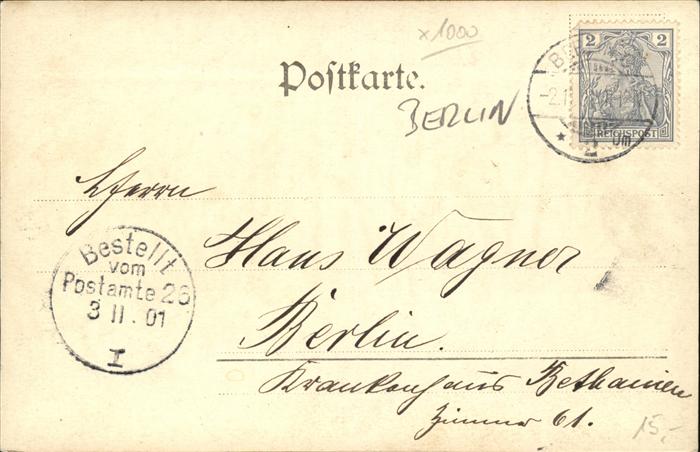 x1000
2 2
REICHSPOST
Postkarte.
BERLIN
Herrn
Hans Wagner
Bestellt
vom
Postamte 26
3 II . 01
I
Berlin.
Krankenhaus Bethanien
Zimmer 61.
15,-